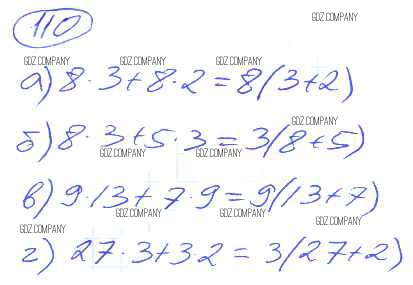 110
GDZ.COMPANY
GDZ.COMPANY GDZ.COMPANY GDZ.COMPANY
а) 8·3+8·2=8(3+2)
GDZ.COMPANY
б) 8·3+5·3=3(8+5)
GDZ.COMPANY GDZ.COMPANY GDZ.COMPANY
в) 9·13+7·9=9(13+7)
GDZ.COMPANY GDZ.COMPANY GDZ.COMPANY
GDZ.COMPANY
г) 27·3+3·2=3(27+2)